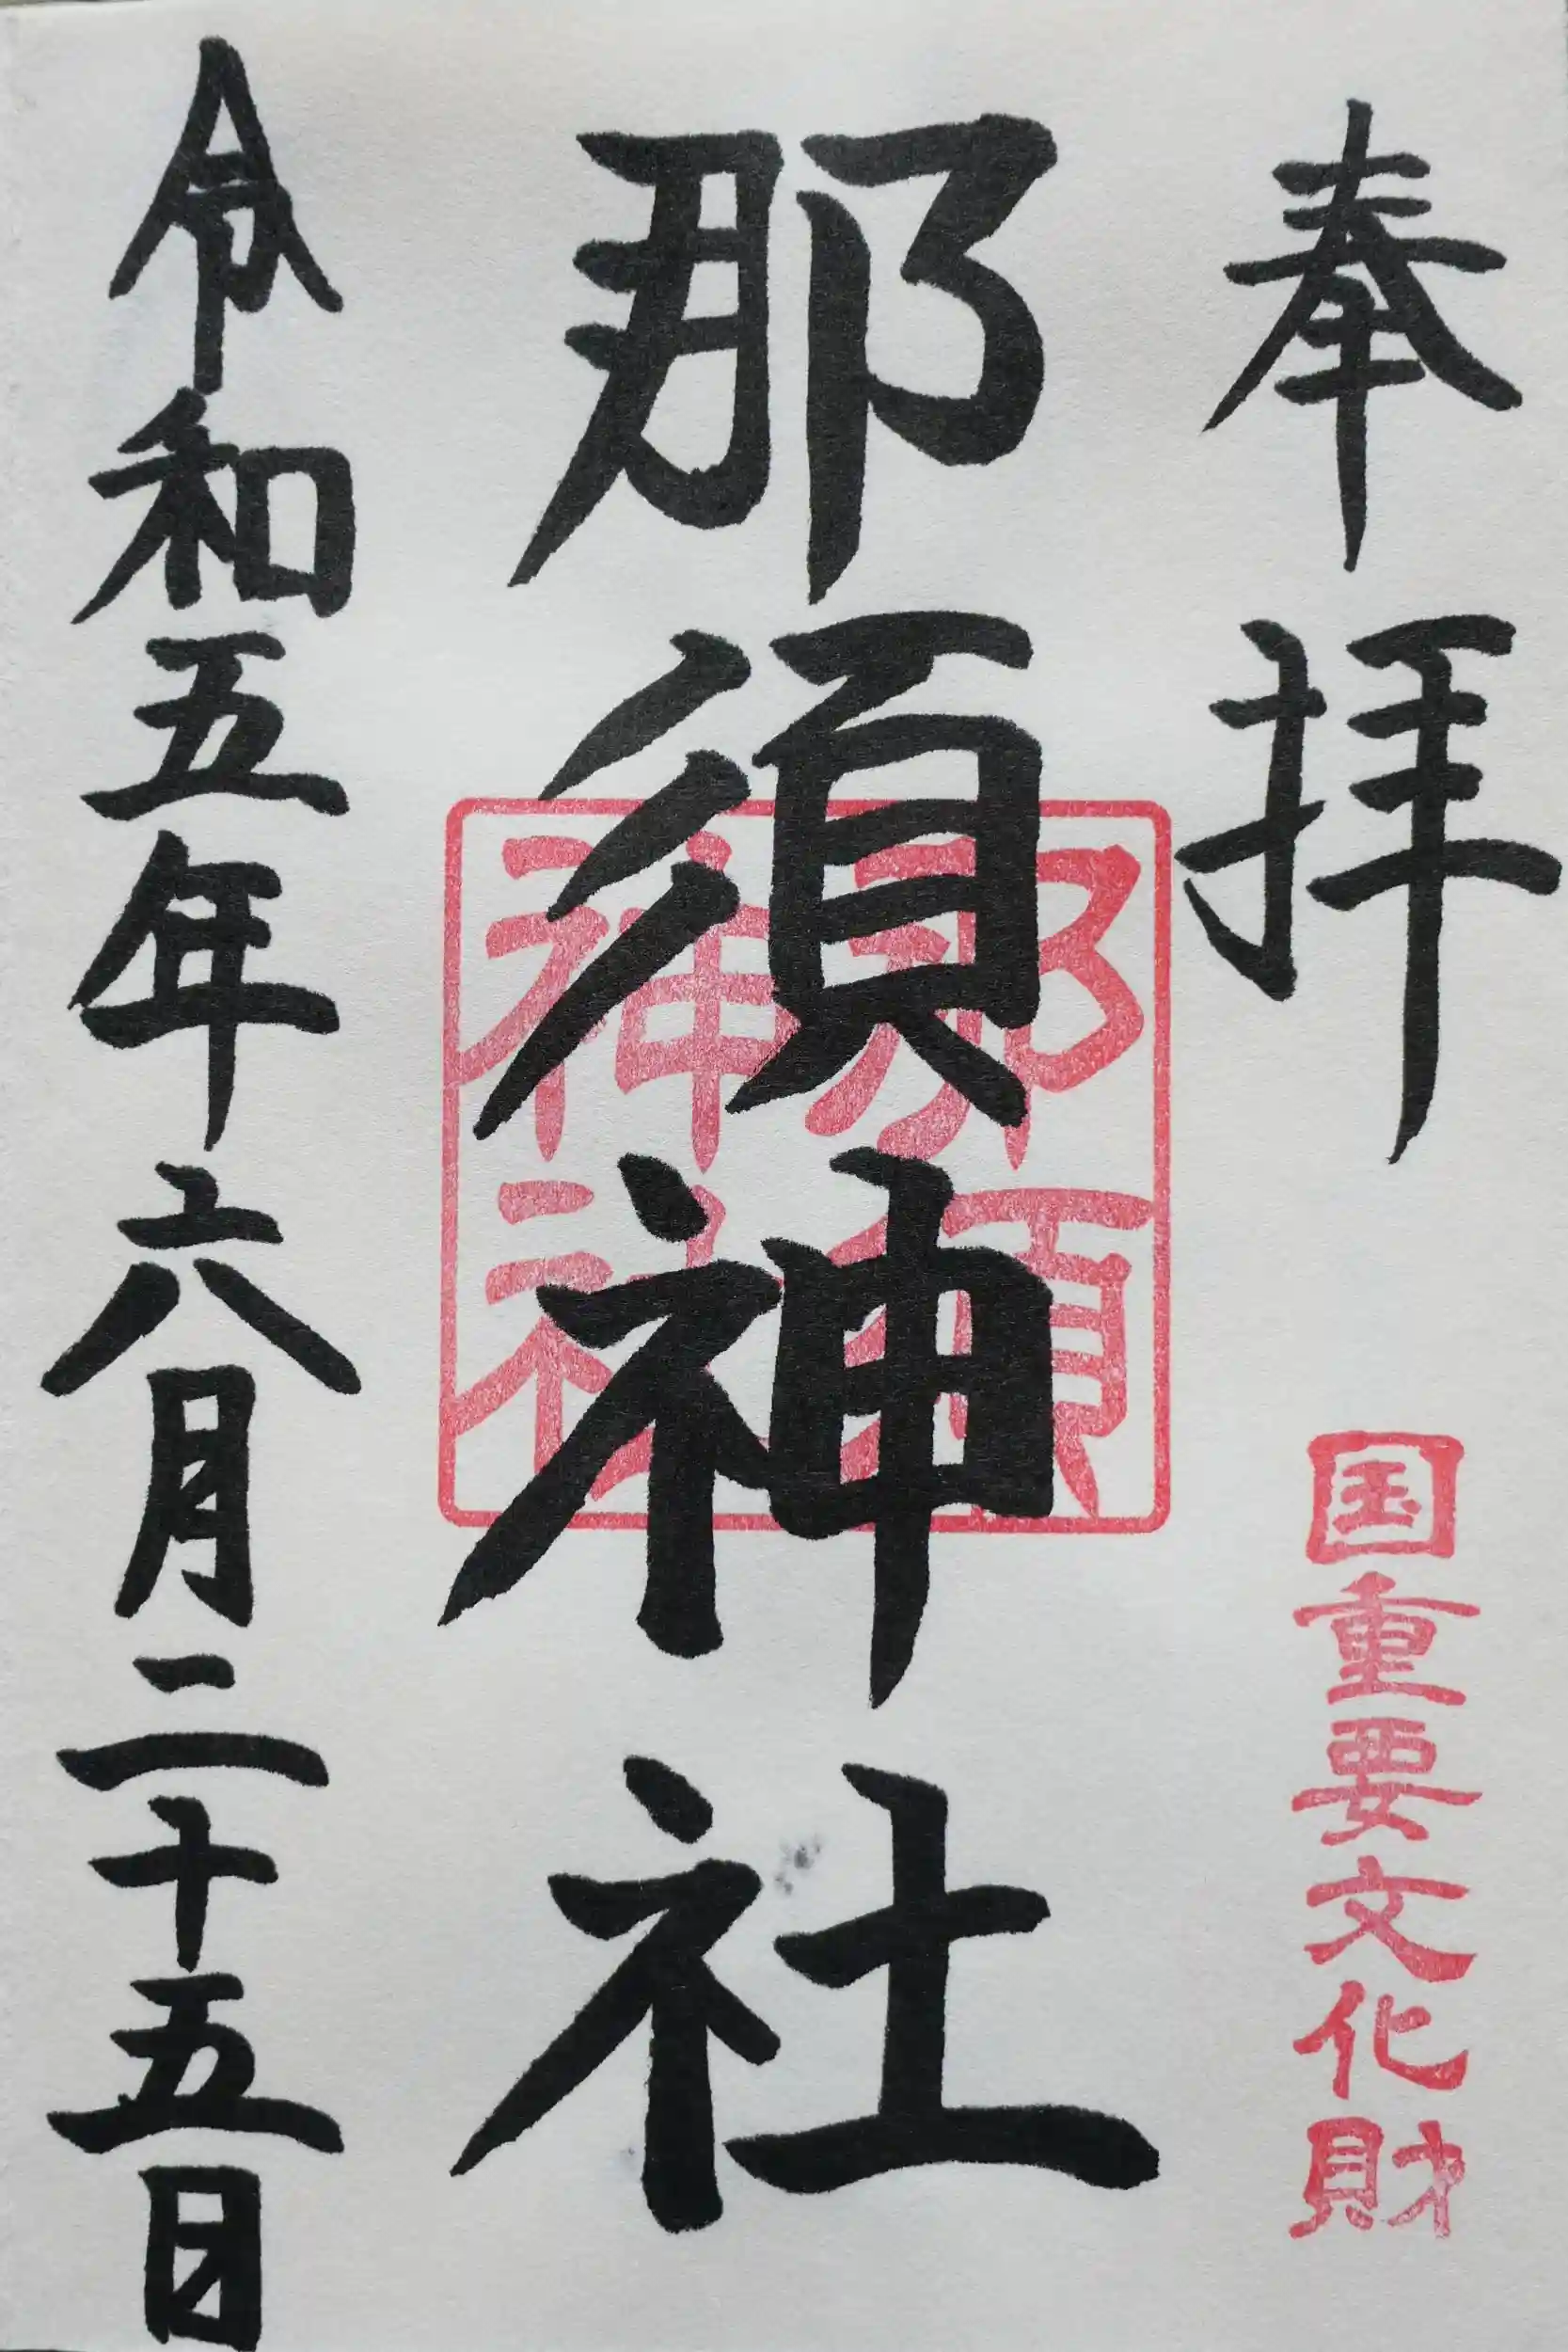 奉拝
国重要文化財
那須神社
那須
神社
令和五年六月二十五日